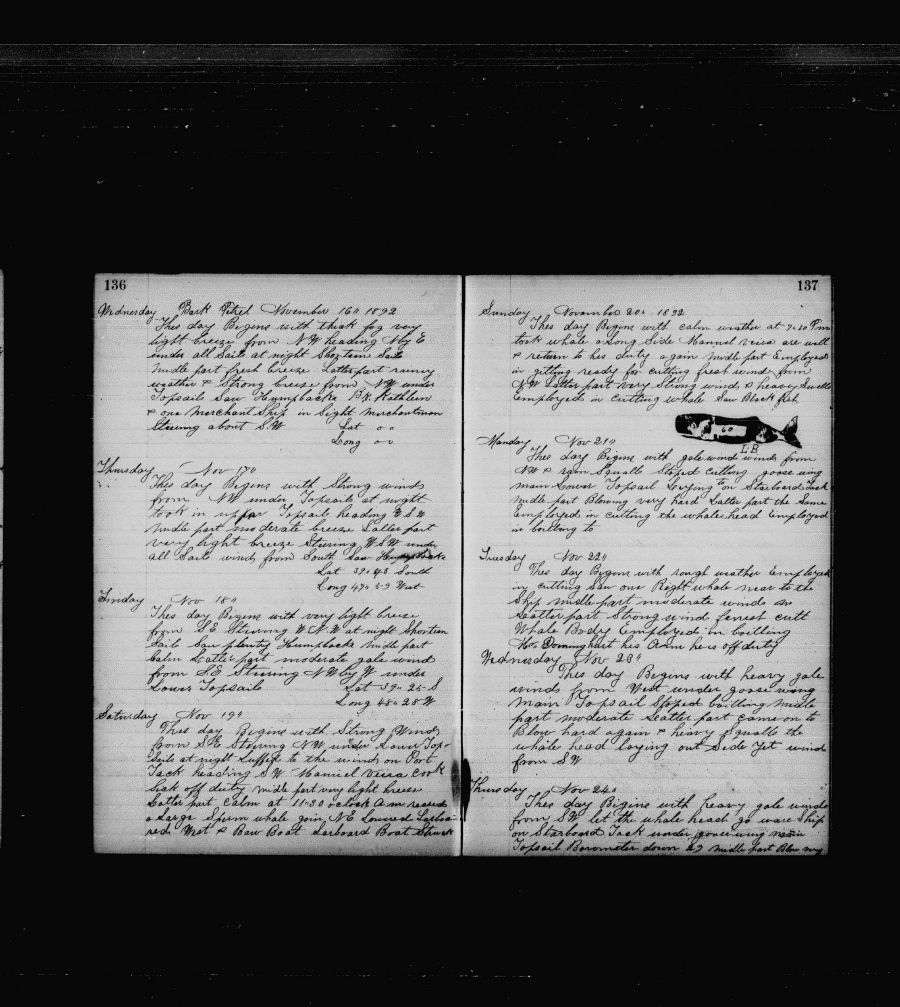 136
Wednesday Bark Petrel November 16" 1892
Thes day Bigins with thick fog very
light breeze from NW heading N by E
under all Sail at night Shorten Sail
Midle part fresh breeze Latter part rainey
weather & Strong breeze from NW under
Topsails Saw Humpbacks Bk Kathleen
& one Merchant Ship in Sight Merchantman
Steering about SW Lat 0 0
Long 0 0
Thursday Nov 17"
Thes day Bigins with Strong winds
from NW under Topsails at night
took in upper Topsails heading WSW
Midle part moderate breeze Latter part
very light breeze Steering WSW under
all Sail wind from South Saw Humpbacks
Lat 39" 43 South
Long 47" 59 West
Finday Nov 18"
Thes day Bigins with very light breeze
from SE Steering WNW at night Shorten
Sail Saw plenty Humpbacks Midle part
Calm Latter part moderate gale wind
from SE Steering NW by W under
Lower Topsails Lat 39" 25 S
Long 48" 28 W
Saturday Nov 19"
Thes day Bigins with Strong Winds
from SE Steering NW under Lower Top-
Sails at night Luffed to the wind on Port
Tack heading SW Manuel Veira Cook
Sick off duty midle part very light breeze
Latter part Calm at 11-30 oclock a.m raised
a Large Sperm whale goin NE Lowered Larboa-
red Wast & Baw Boat Larboard Boat Struck
137
Sunday November 20" 1892
Thes day Bigins with calm weather at 7-30 Pm
took whale along Side Manuel Veira are well
& return to his duty again Midle part Employed
in gitting ready for cutting fresh wind from
NW Latter part very Strong wind & heavy Swells
Employed in cutting whale Saw Black fish
60
LB
Manday Nov 21"
Thes day Bigins with gale wind winds from
NW & rain Squalls Stoped Cutting goose wing
main Lower Topsail Laying to on Starboard Tack
Midle part Blowing very hard Latter part the Same
Employed in cutting the whale head Employed
in boilling to
Tuesday Nov 22"
Thes day Bigins with rough weather Employed
in cutting Saw one Right whale near to the
Ship midle part moderate winds
Latter part Strong wind finest cutt
Whale Bodey Employed in boilling
Domingo hurt his Arm he is off duty
Wednesday Nov 23"
Thes day Begins with heavy gale
winds from West under goose wing
main Topsail Stoped boilling midle
part moderate Latter part came on to
Blow hard again & heavy Squalls the
whale head laying out Side Yet wind
from SW
Thursday Nov 24"
Thes day Bigins with heavy gale winds
from SW Let the whale head go ware Ship
on Starboard Tack under goose wing main
Topsail Barometer down 29 midle part Blow very